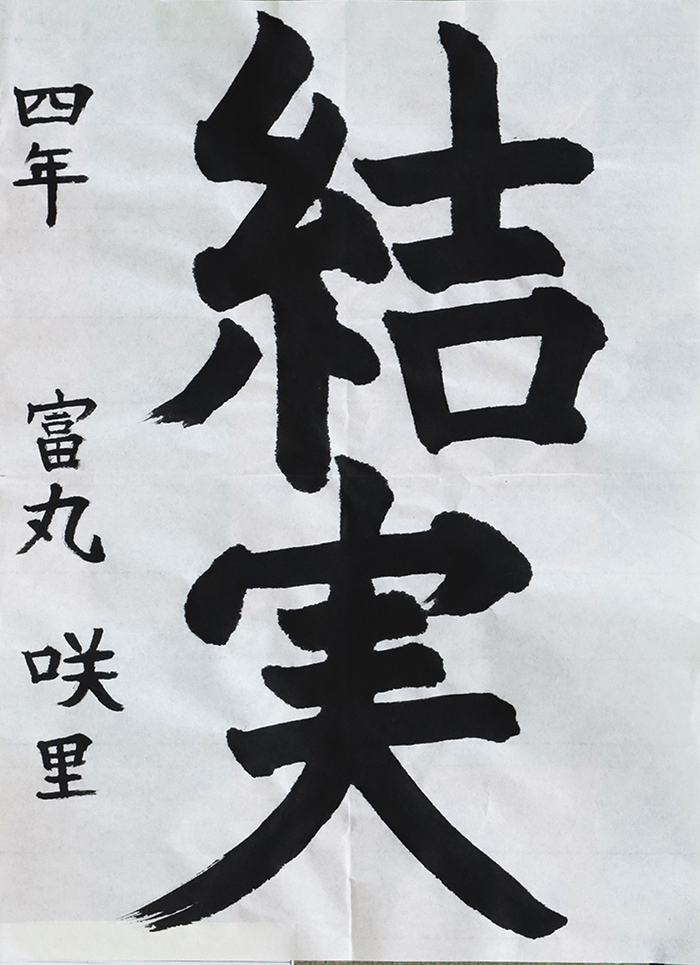 結実
四年 富丸 咲里